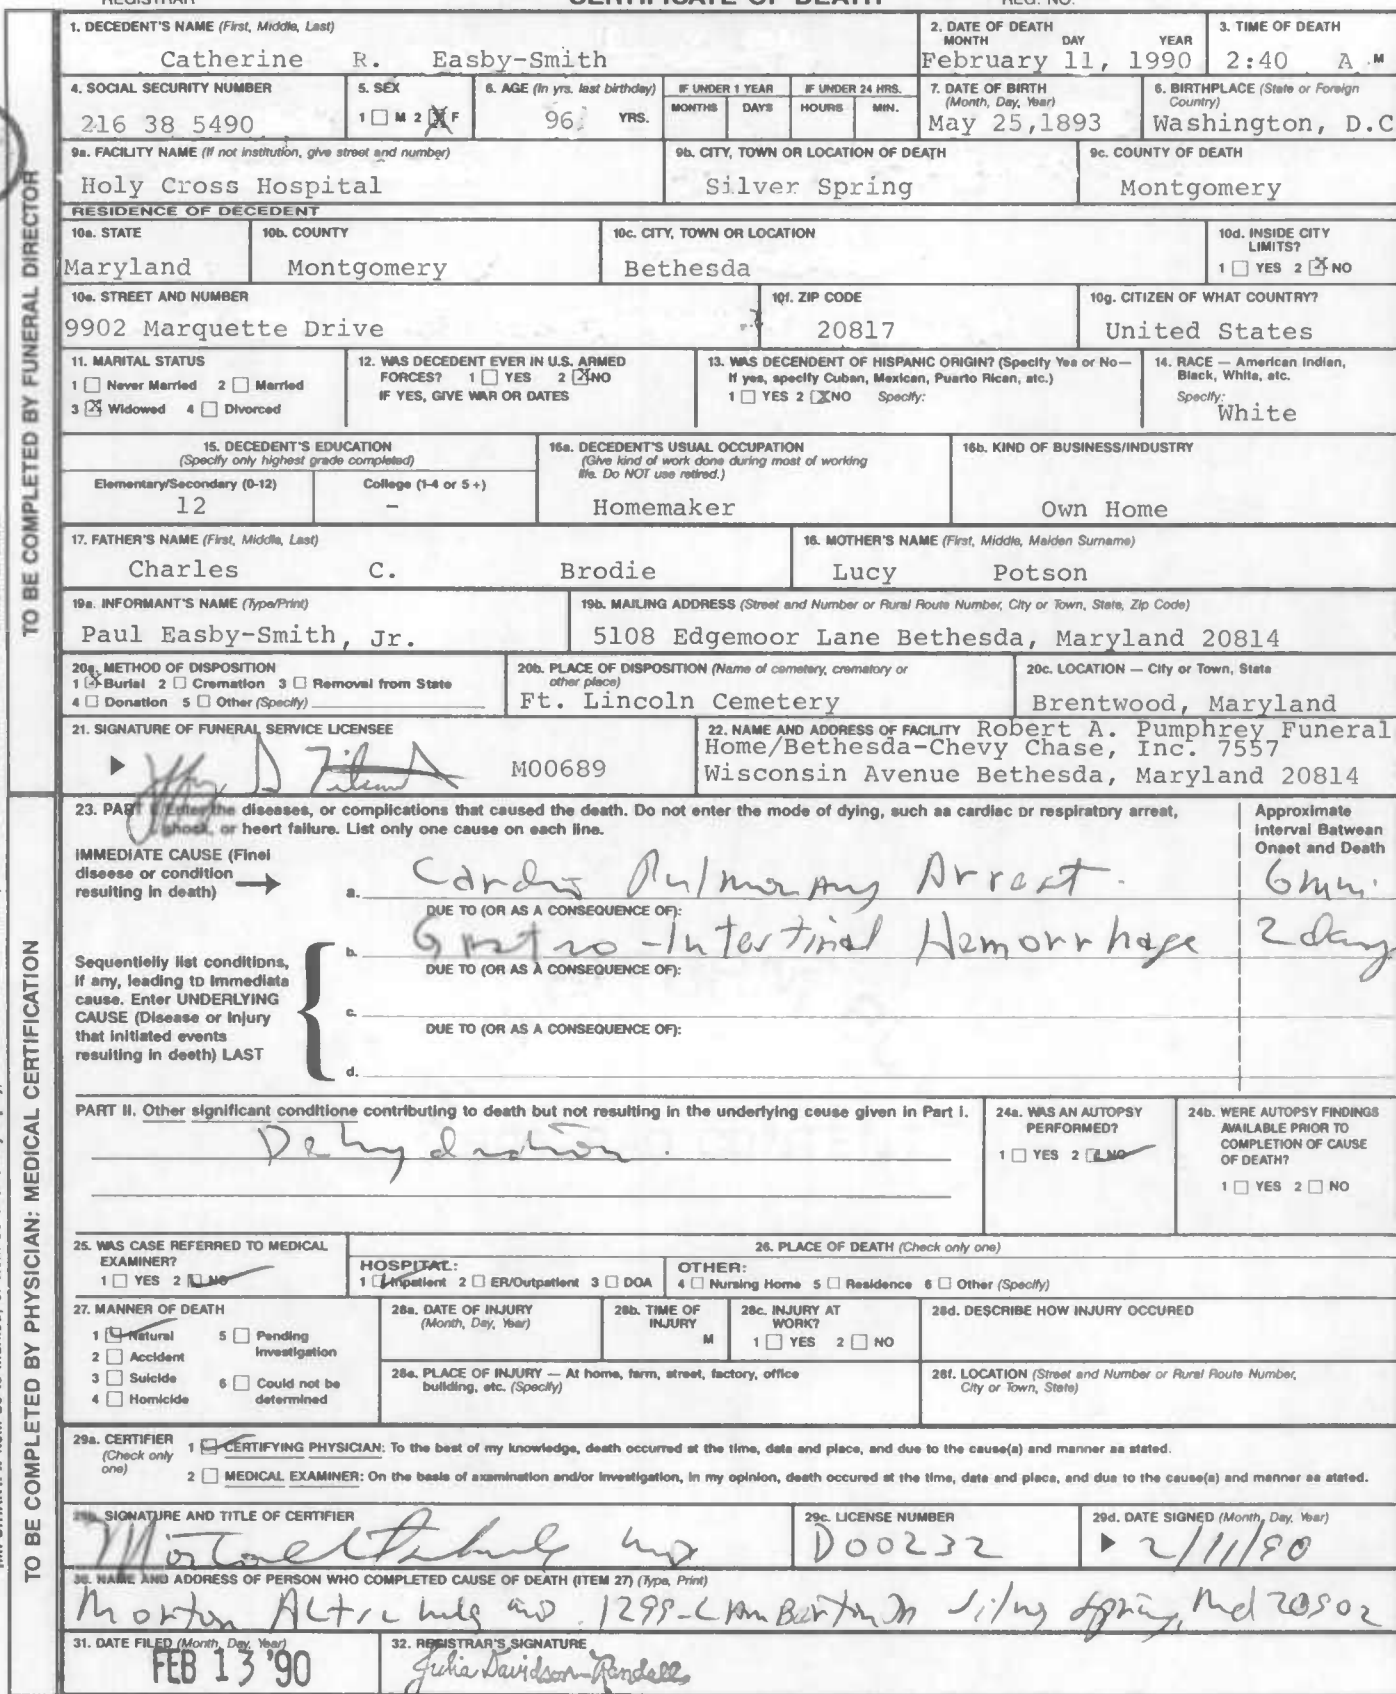 CERTIFICATE OF DEATH
REGISTRAR
REG. NO.
TO BE COMPLETED BY FUNERAL DIRECTOR
1. DECEDENT'S NAME (First, Middle, Last)
Catherine R. Easby-Smith
2. DATE OF DEATH
MONTH DAY YEAR
February 11, 1990
3. TIME OF DEATH
2:40 A M
4. SOCIAL SECURITY NUMBER
216 38 5490
5. SEX
1 M 2 X F
6. AGE (In yrs. last birthday)
96 YRS.
IF UNDER 1 YEAR
MONTHS DAYS
IF UNDER 24 HRS.
HOURS MIN.
7. DATE OF BIRTH
(Month, Day, Year)
May 25,1893
6. BIRTHPLACE (State or Foreign
Country)
Washington, D.C
9a. FACILITY NAME (If not institution, give street and number)
Holy Cross Hospital
9b. CITY, TOWN OR LOCATION OF DEATH
Silver Spring
9c. COUNTY OF DEATH
Montgomery
RESIDENCE OF DECEDENT
10a. STATE
Maryland
10b. COUNTY
Montgomery
10c. CITY, TOWN OR LOCATION
Bethesda
10d. INSIDE CITY
LIMITS?
1 YES 2 X NO
10e. STREET AND NUMBER
9902 Marquette Drive
10f. ZIP CODE
20817
10g. CITIZEN OF WHAT COUNTRY?
United States
11. MARITAL STATUS
1 Never Married 2 Married
3 X Widowed 4 Divorced
12. WAS DECEDENT EVER IN U.S. ARMED
FORCES? 1 YES 2 X NO
IF YES, GIVE WAR OR DATES
13. WAS DECENDENT OF HISPANIC ORIGIN? (Specify Yes or No—
If yes, specify Cuban, Mexican, Puerto Rican, etc.)
1 YES 2 X NO Specify:
14. RACE — American Indian,
Black, White, etc.
Specify:
White
15. DECEDENT'S EDUCATION
(Specify only highest grade completed)
Elementary/Secondary (0-12)
12
College (1-4 or 5+)
-
16a. DECEDENT'S USUAL OCCUPATION
(Give kind of work done during most of working
life. Do NOT use retired.)
Homemaker
16b. KIND OF BUSINESS/INDUSTRY
Own Home
17. FATHER'S NAME (First, Middle, Last)
Charles C. Brodie
16. MOTHER'S NAME (First, Middle, Maiden Surname)
Lucy Potson
19a. INFORMANT'S NAME (Type/Print)
Paul Easby-Smith, Jr.
19b. MAILING ADDRESS (Street and Number or Rural Route Number, City or Town, State, Zip Code)
5108 Edgemoor Lane Bethesda, Maryland 20814
20a. METHOD OF DISPOSITION
1 X Burial 2 Cremation 3 Removal from State
4 Donation 5 Other (Specify)
20b. PLACE OF DISPOSITION (Name of cemetery, crematory or
other place)
Ft. Lincoln Cemetery
20c. LOCATION — City or Town, State
Brentwood, Maryland
21. SIGNATURE OF FUNERAL SERVICE LICENSEE
M00689
22. NAME AND ADDRESS OF FACILITY Robert A. Pumphrey Funeral
Home/Bethesda-Chevy Chase, Inc. 7557
Wisconsin Avenue Bethesda, Maryland 20814
TO BE COMPLETED BY PHYSICIAN: MEDICAL CERTIFICATION
23. PART I. Enter the diseases, or complications that caused the death. Do not enter the mode of dying, such as cardiac or respiratory arrest,
shock, or heart failure. List only one cause on each line.
Approximate
Interval Between
Onset and Death
IMMEDIATE CAUSE (Final
disease or condition
resulting in death)
a. Cardio Pulmonary Arrest. 6 min.
DUE TO (OR AS A CONSEQUENCE OF):
b. Gastro-Intestinal Hemorrhage 2 days
DUE TO (OR AS A CONSEQUENCE OF):
c.
DUE TO (OR AS A CONSEQUENCE OF):
d.
Sequentially list conditions,
if any, leading to immediate
cause. Enter UNDERLYING
CAUSE (Disease or Injury
that initiated events
resulting in death) LAST
PART II. Other significant conditions contributing to death but not resulting in the underlying cause given in Part I.
Dehydration.
24a. WAS AN AUTOPSY
PERFORMED?
1 YES 2 NO
24b. WERE AUTOPSY FINDINGS
AVAILABLE PRIOR TO
COMPLETION OF CAUSE
OF DEATH?
1 YES 2 NO
25. WAS CASE REFERRED TO MEDICAL
EXAMINER?
1 YES 2 NO
26. PLACE OF DEATH (Check only one)
HOSPITAL:
1 Inpatient 2 ER/Outpatient 3 DOA
OTHER:
4 Nursing Home 5 Residence 6 Other (Specify)
27. MANNER OF DEATH
1 Natural 5 Pending
Investigation
2 Accident
3 Suicide 6 Could not be
determined
4 Homicide
28a. DATE OF INJURY
(Month, Day, Year)
28b. TIME OF
INJURY
M
28c. INJURY AT
WORK?
1 YES 2 NO
28d. DESCRIBE HOW INJURY OCCURED
28e. PLACE OF INJURY — At home, farm, street, factory, office
building, etc. (Specify)
28f. LOCATION (Street and Number or Rural Route Number,
City or Town, State)
29a. CERTIFIER
(Check only
one)
1 CERTIFYING PHYSICIAN: To the best of my knowledge, death occurred at the time, date and place, and due to the cause(s) and manner as stated.
2 MEDICAL EXAMINER: On the basis of examination and/or investigation, in my opinion, death occured at the time, date and place, and due to the cause(s) and manner as stated.
29b. SIGNATURE AND TITLE OF CERTIFIER
29c. LICENSE NUMBER
D00232
29d. DATE SIGNED (Month, Day, Year)
2/11/90
30. NAME AND ADDRESS OF PERSON WHO COMPLETED CAUSE OF DEATH (ITEM 27) (Type, Print)
Morton Altschuler MD. 1299 Lamberton Dr Silver Spring, Md 20902
31. DATE FILED (Month, Day, Year)
FEB 13 '90
32. REGISTRAR'S SIGNATURE
Julia Davidson-Randall